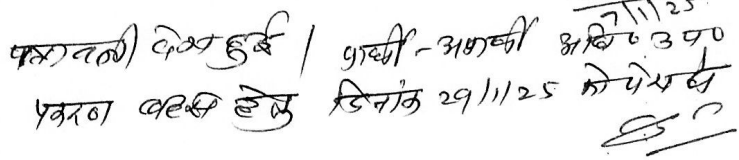 7/1/25
पत्रावली पेश हुई । प्रार्थी - अप्रार्थी अधि० उप०
प्रकरण बहस हेतु दिनांक 29/1/25 को पेश हो